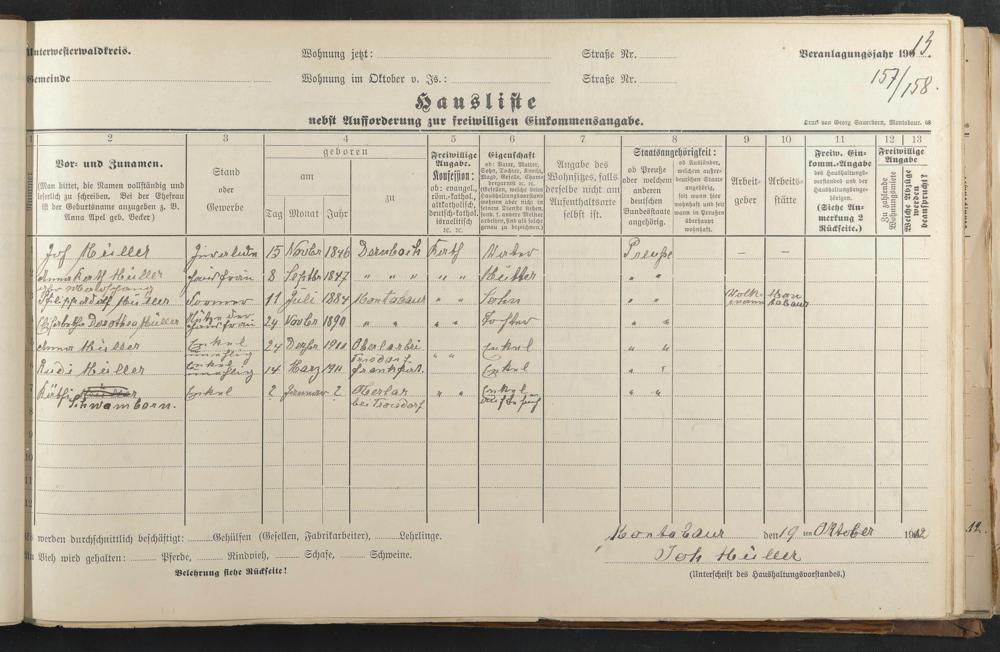 Unterwesterwaldkreis. Wohnung jetzt: Straße Nr. Veranlagungsjahr 1913.
Gemeinde Wohnung im Oktober v. Js.: Straße Nr. 157/158.
Hausliste
nebst Aufforderung zur freiwilligen Einkommensangabe.
Druck von Georg Sauerborn, Montabaur.
1 2 3 4 5 6 7 8 9 10 11 12 13
Vor- und Zunamen.
(Man bittet, die Namen vollständig und
leserlich zu schreiben. Bei der Ehefrau
ist der Geburtsname anzugeben z. B.
Anna Apel geb. Becker)
Stand
oder
Gewerbe
geboren
am
Tag Monat Jahr
zu
Freiwillige
Angabe.
Konfession:
ob: evangel.,
röm.-kathol.,
altkatholisch,
deutsch-kathol.
israelitisch
ꝛc. ꝛc.
Eigenschaft
ob: Vater, Mutter,
Sohn, Tochter, Knecht,
Magd, Geselle,
genau zu bezeichnen.)
Angabe des
Wohnsitzes, falls
derselbe nicht am
Aufenthaltsorte
selbst ist.
Staatsangehörigkeit:
ob Preuße
oder welchem
anderen
deutschen
Bundesstaate
angehörig.
ob Ausländer,
welchem außer-
deutschen Staate
angehörig,
seit wann hier
wohnhaft und seit
wann in Preußen
überhaupt
wohnhaft.
Arbeit-
geber
Arbeits-
stätte
Freiw. Ein-
komm.-Angabe
des Haushaltungs-
vorstandes und der
Haushaltungsange-
hörigen.
(Siehe An-
merkung 2
Rückseite.)
Freiwillige
Angabe
Zu zahlende
Wohnungsmiete
Welche Abzüge
werden
beansprucht?
Joh Müller Invalide 15 Novbr 1846 Dernbach Kath Vater Preuße – –
Anna Kath Müller Hausfrau 8 Septbr 1847 " " " " " Mutter " "
Müller 11 Juli 1884 Montabaur Sohn " "
Elisabetha Dorothea Müller 24 Novbr 1890 " " " " Tochter " "
Anna Müller Enkel 24 Dezbr Oberlar bei Enkel " "
unehlig Troisdorf " "
Rudi Müller Enkel 14 März 1911 Frankfurt. Enkel " "
unehlig
Käthi Müller Enkel 2 Januar 2 Oberlar " " Enkel " "
Schwamborn. bei Troisdorf
Es werden durchschnittlich beschäftigt: Gehülfen (Gesellen, Fabrikarbeiter), Lehrlinge. Montabaur den 19 ten Oktober 1912
An Vieh wird gehalten: Pferde, Rindvieh, Schafe, Schweine. Joh Müller
Belehrung siehe Rückseite! (Unterschrift des Haushaltungsvorstandes.)